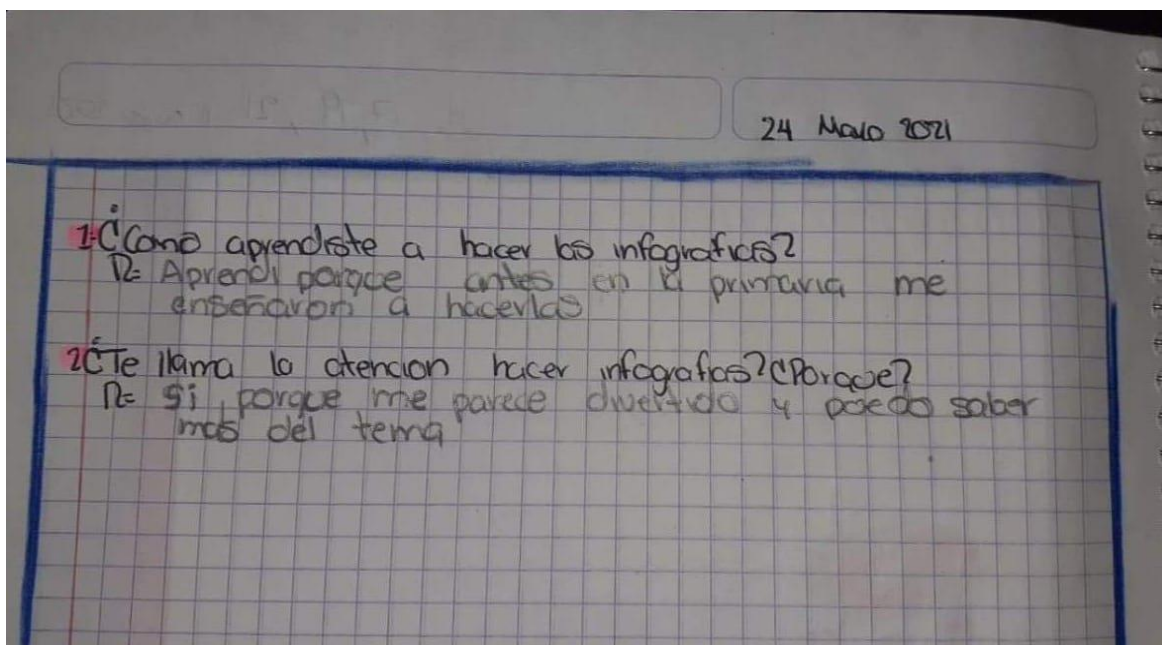 24 Mayo 2021
1-¿Como aprendiste a hacer las infograficas?
R= Aprendi porque antes en la primaria me
enseñaron a hacerlas
2¿Te llama la atencion hacer infografias? ¿Porque?
R= Si, porque me parece divertido y puedo saber
mas del tema